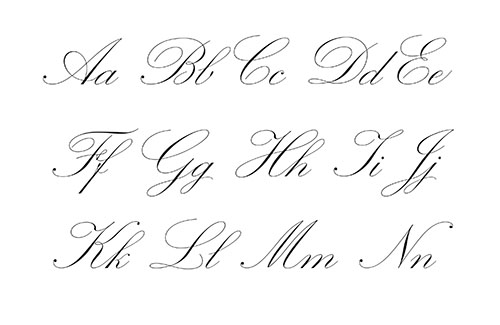 Aa Bb Cc Dd Ee
Ff Gg Hh Ii Jj
Kk Ll Mm Nn